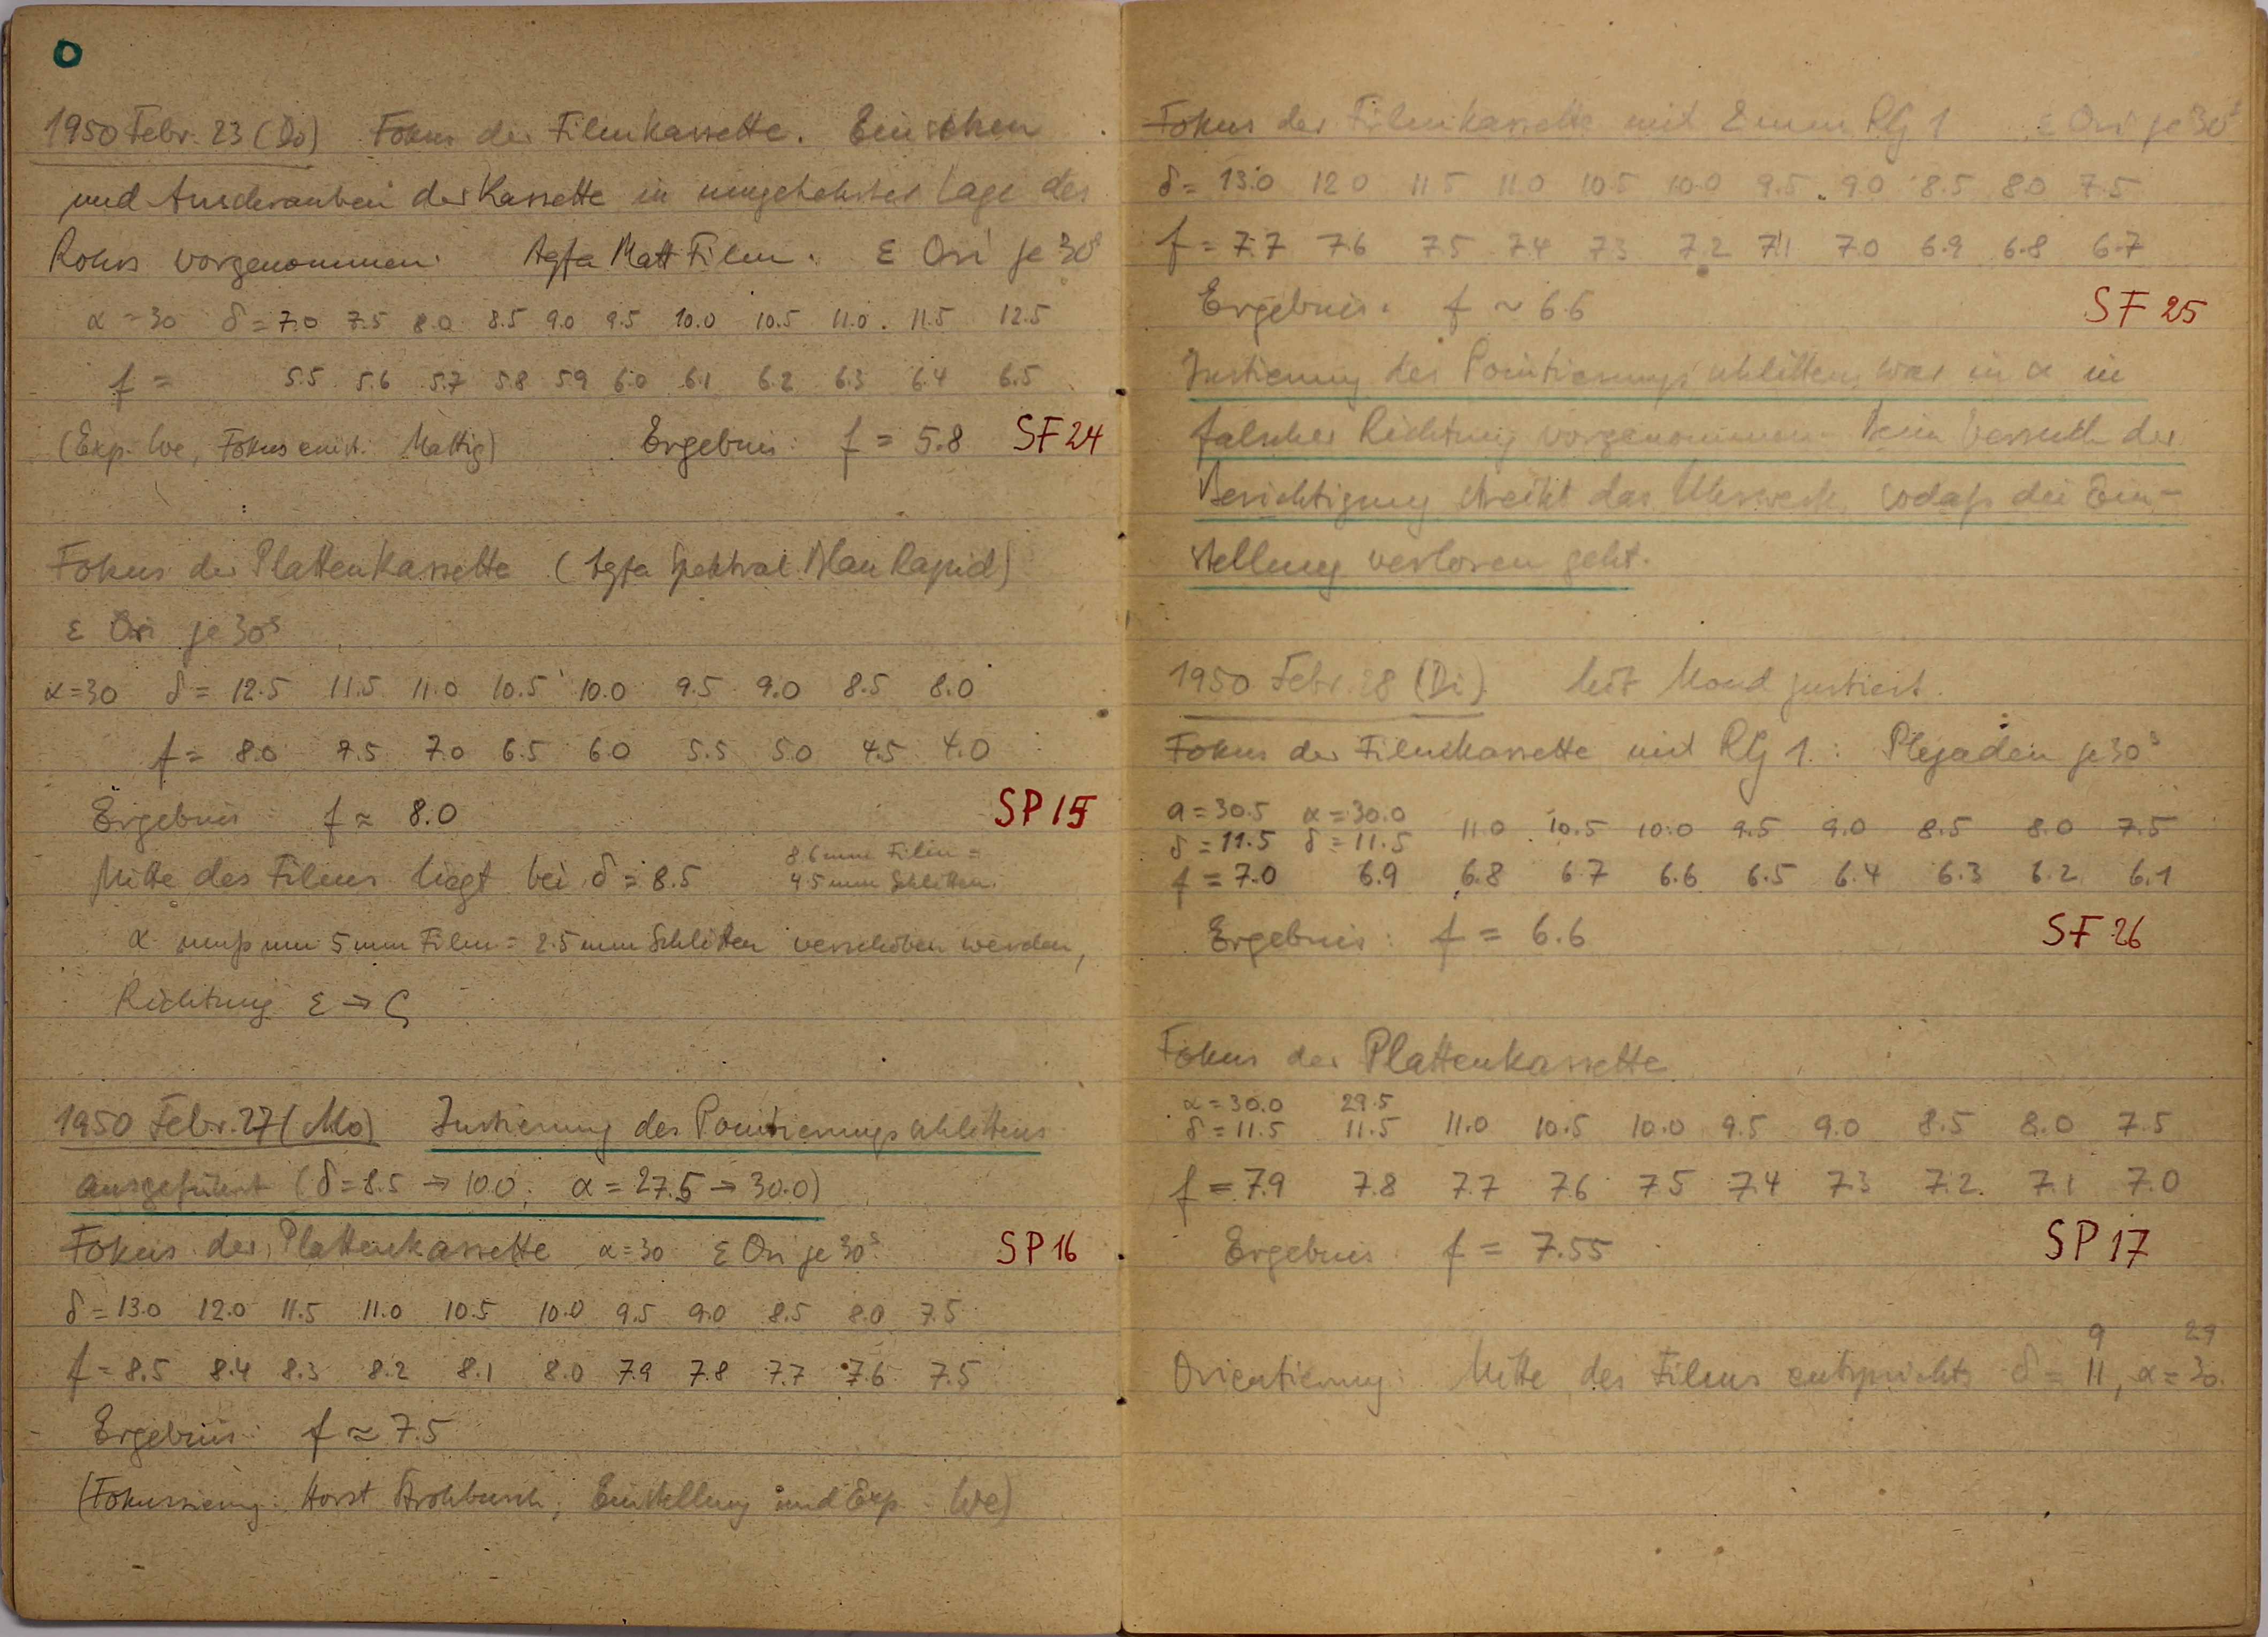 O
1950 Febr. 23 (Do) Fokus der Filmkassette. Einsetzen
und Ausschrauben der Kassette in umgekehrter Lage des
Rohrs vorgenommen. Agfa Matt Film. ε Ori je 30ˢ
α = 30 δ = 7.0 7.5 8.0 8.5 9.0 9.5 10.0 10.5 11.0 11.5 12.5
f = 5.5 5.6 5.7 5.8 5.9 6.0 6.1 6.2 6.3 6.4 6.5
(Exp. We, Fokus Mattig) Ergebnis: f = 5.8 SF 24
Fokus der Plattenkassette (Agfa Spektral Blau Rapid)
ε Ori je 30ˢ
α=30 δ = 12.5 11.5 11.0 10.5 10.0 9.5 9.0 8.5 8.0
f = 8.0 7.5 7.0 6.5 6.0 5.5 5.0 4.5 4.0
Ergebnis f ≈ 8.0 SP 15
8.6 mm Film =
Mitte des Films liegt bei δ = 8.5 4.5 mm Schlitten.
α muß um 5 mm Film = 2.5 mm Schlitten verschoben werden,
Richtung ε → ζ
1950 Febr. 27 (Mo) Justierung des Pointierungsschlittens
ausgeführt (δ = 8.5 → 10.0; α = 27.5 → 30.0)
Fokus der Plattenkassette α=30 ε Ori je 30ˢ SP 16
δ = 13.0 12.0 11.5 11.0 10.5 10.0 9.5 9.0 8.5 8.0 7.5
f = 8.5 8.4 8.3 8.2 8.1 8.0 7.9 7.8 7.7 7.6 7.5
Ergebnis: f ≈ 7.5
(Fokussierung: Horst Strohbusch, Einstellung und Exp. We)
Fokus der Filmkassette mit 2 mm RG 1 ε Ori je 30ˢ
δ = 13.0 12.0 11.5 11.0 10.5 10.0 9.5 9.0 8.5 8.0 7.5
f = 7.7 7.6 7.5 7.4 7.3 7.2 7.1 7.0 6.9 6.8 6.7
Ergebnis: f ~ 6.6 SF 25
Justierung des Pointierungsschlittens war in α in
falscher Richtung vorgenommen. Beim Versuch der
Berichtigung streikt das Uhrwerk, sodaß die Ein-
stellung verloren geht.
1950 Febr. 28 (Di). Mit Mond justiert.
Fokus der Filmkassette mit RG 1.: Plejaden je 30ˢ
α = 30.5 α = 30.0
δ = 11.5 δ = 11.5 11.0 10.5 10.0 9.5 9.0 8.5 8.0 7.5
f = 7.0 6.9 6.8 6.7 6.6 6.5 6.4 6.3 6.2 6.1
Ergebnis: f = 6.6 SF 26
Fokus der Plattenkassette
α = 30.0 29.5
δ = 11.5 11.5 11.0 10.5 10.0 9.5 9.0 8.5 8.0 7.5
f = 7.9 7.8 7.7 7.6 7.5 7.4 7.3 7.2 7.1 7.0
Ergebnis: f = 7.55 SP 17
9 29
Orientierung: Mitte des Films entspricht δ = 11, α = 30.